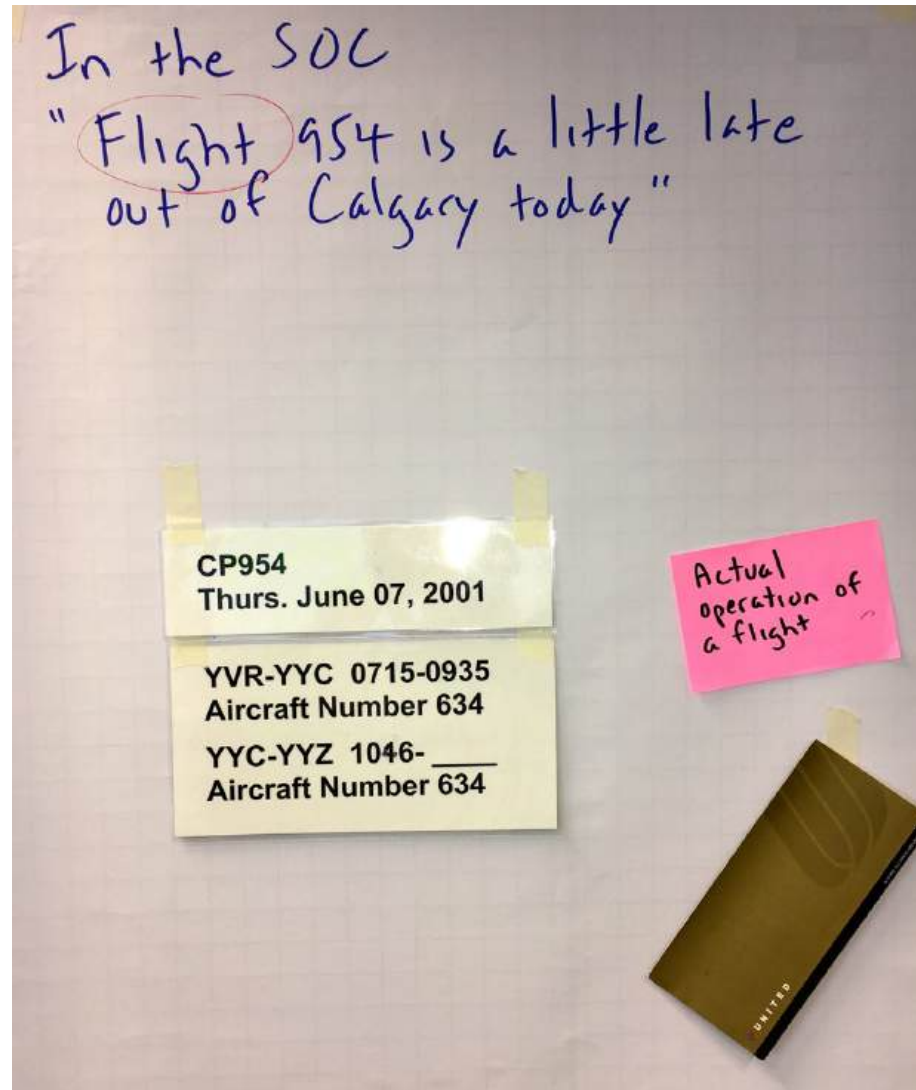 In the SOC
"Flight 954 is a little late
out of Calgary today"
CP954
Thurs. June 07, 2001
YVR-YYC 0715-0935
Aircraft Number 634
YYC-YYZ 1046-____
Aircraft Number 634
Actual
operation of
a flight
UNITED